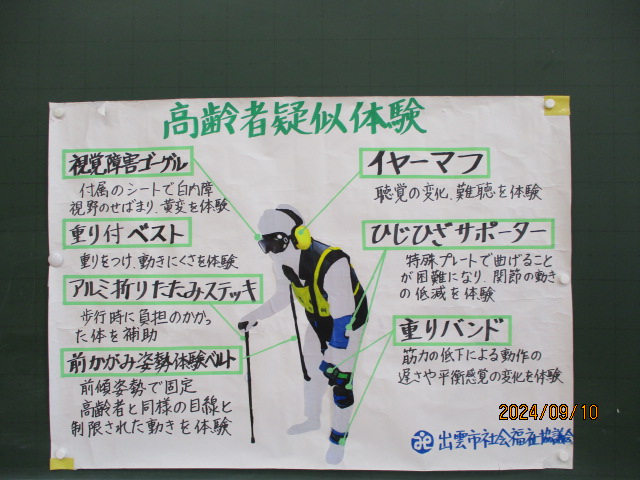 高齢者疑似体験
視覚障害ゴーグル
付属のシートで白内障
視野のせばまり、黄変を体験
重り付ベスト
重りをつけ、動きにくさを体験
アルミ折りたたみステッキ
歩行時に負担のかかっ
た体を補助
前かがみ姿勢体験ベルト
前傾姿勢で固定
高齢者と同様の目線と
制限された動きを体験
イヤーマフ
聴覚の変化、難聴を体験
ひじひざサポーター
特殊プレートで曲げること
が困難になり、関節の動き
の低減を体験
重りバンド
筋力の低下による動作の
遅さや平衡感覚の変化を体験
出雲市社会福祉協議会
2024/09/10